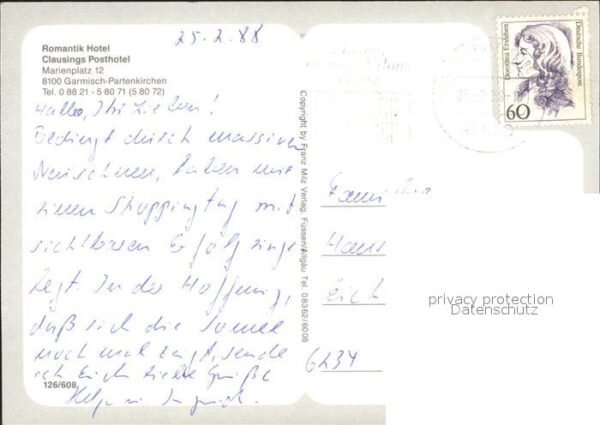 25.2.88
Romantik Hotel
Clausings Posthotel
Marienplatz 12
8100 Garmisch-Partenkirchen
Tel. 0 88 21 - 5 80 71 (5 80 72)
Hallo, Ihr Lieben!
Bedingt durch massiven
Neuschnee, haben wir
einen Shoppingtag mit
sichtbarem Erfolg einge
legt. In der Hoffnung,
daß sich die Sonne
noch mal zeigt, sende
ich Euch liebe Grüße
126/608
Copyright by Franz Milz Verlag, Füssen/Allgäu Tel. 08362/6008
Dorothea Erxleben
Deutsche Bundespost
60
Familie
Hans
Eich
6234
privacy protection
Datenschutz